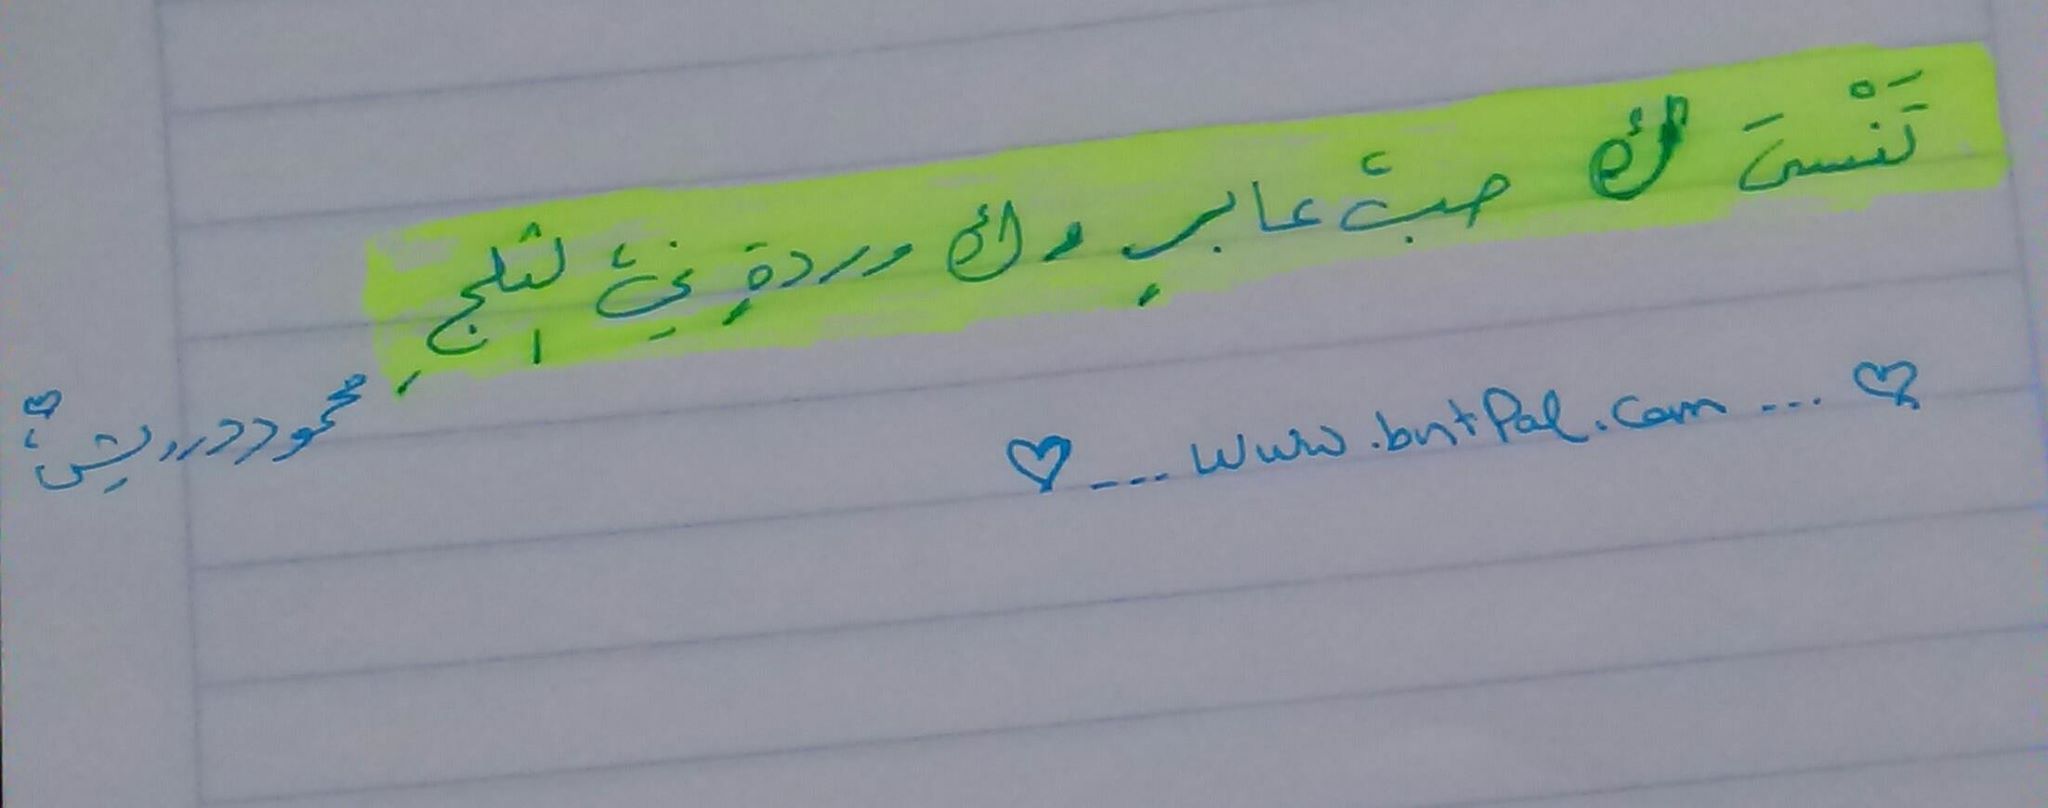 تَنْسىَ ك حبّ عابرٍ وك وردةٍ فيّ لثلجِ
محمود درويش
♡ --- www.bntPal.com ... ♡